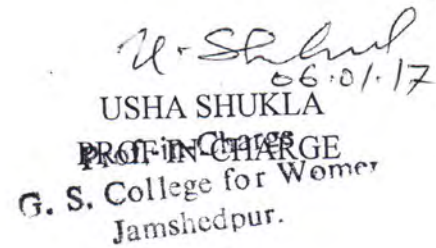 U. Shukla
06.01.17
USHA SHUKLA
PROF-IN-CHARGE
Prof-in-Charge
G. S. College for Women
Jamshedpur.